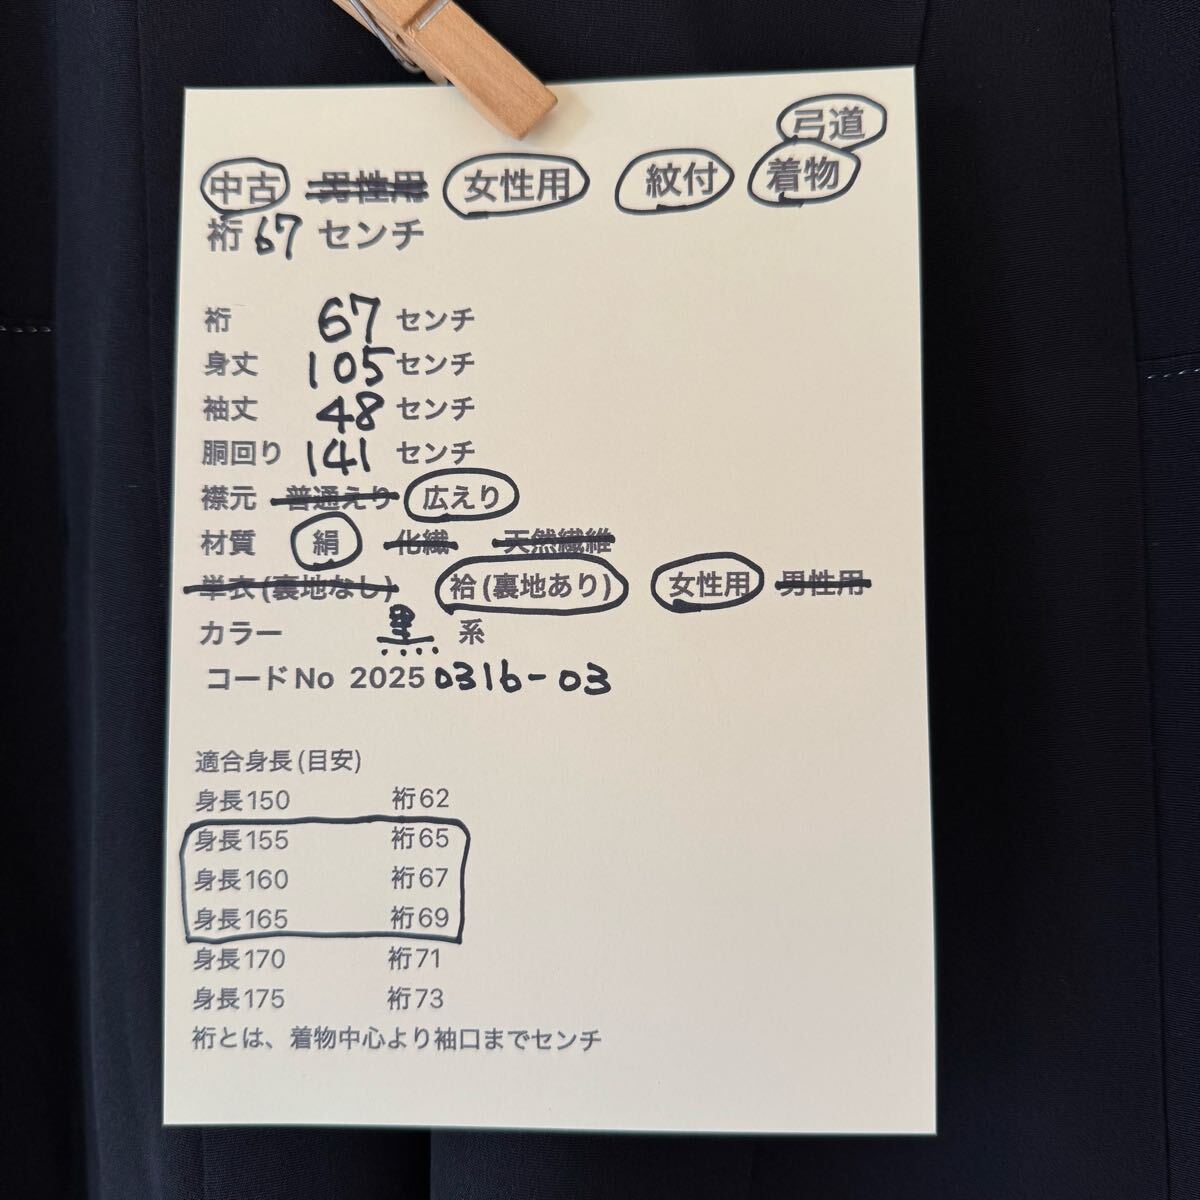 弓道
中古 男性用 女性用 紋付 着物
裄 67 センチ
裄 67 センチ
身丈 105 センチ
袖丈 48 センチ
胴回り 141 センチ
襟元 普通えり 広えり
材質 絹 化繊 天然繊維
単衣(裏地なし) 袷(裏地あり) 女性用 男性用
カラー 黒 系
コードNo 20250316-03
適合身長(目安)
身長150 裄62
身長155 裄65
身長160 裄67
身長165 裄69
身長170 裄71
身長175 裄73
裄とは、着物中心より袖口までセンチ